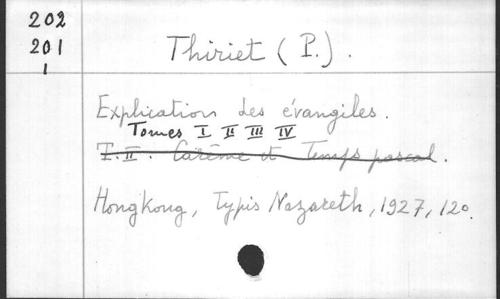 202
201
1
Thiriet (P.).
Explication des évangiles.
Tomes I II III IV
T.II. Carême et Temps pascal.
Hongkong, Typis Nazareth, 1927, 12o.